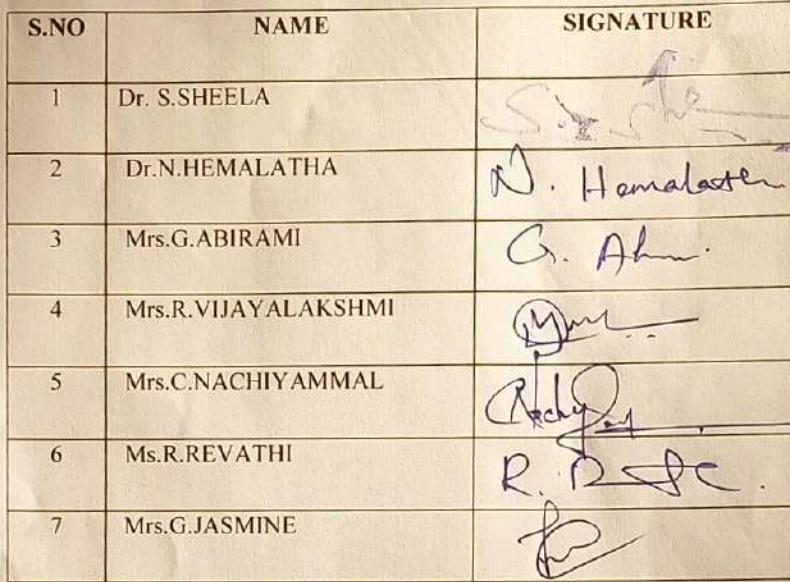 S.NO NAME SIGNATURE
1 Dr. S.SHEELA
2 Dr.N.HEMALATHA N. Hemalath
3 Mrs.G.ABIRAMI G.
4 Mrs.R.VIJAYALAKSHMI
5 Mrs.C.NACHIYAMMAL
6 Ms.R.REVATHI R.
7 Mrs.G.JASMINE